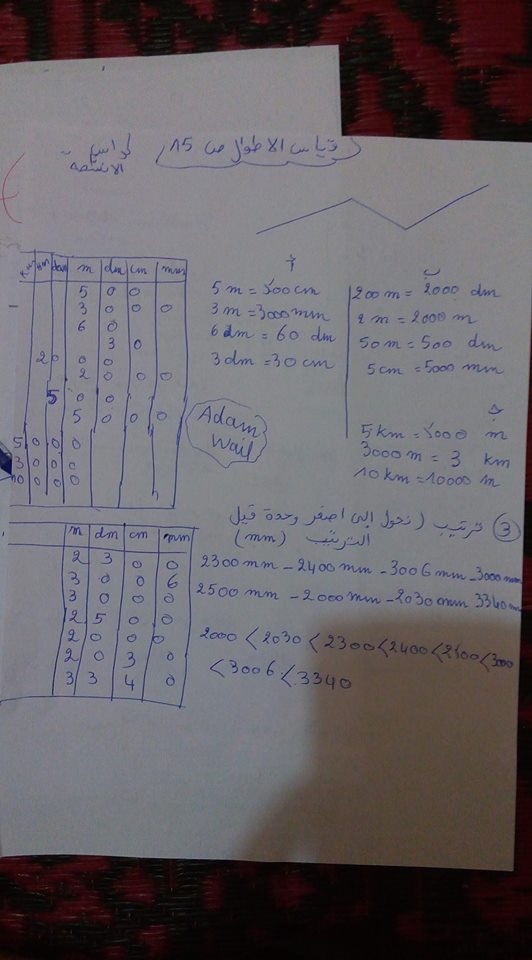 قياس الاطوال ص 15) كراس
الانشطة
أ
5 m = 500 cm
3 m = 3000 mm
6 dm = 60 dm
3 dm = 30 cm
ب
200 m = 2000 dm
2 m = 2000 m
50 m = 500 dm
5 cm = 5000 mm
ج
5 km = 5000 m
3000 m = 3 km
10 km = 10000 m
Km Hm dam m dm cm mm
5 0 0
3 0 0 0
6 0
3 0
2 0 0 0
2 0 0 0
5 0 0
5 0 0 0
5 0 0 0
3 0 0 0
10 0 0 0
Adam
Wail
3 ترتيب (نحول إلى اصغر وحدة قبل
الترتيب (mm)
2300 mm - 2400 mm - 3006 mm - 3000 mm
2500 mm - 2000 mm - 2030 mm 3340 m
2000 < 2030 < 2300 < 2400 < 2500 < 3000
< 3006 < 3340
m dm cm mm
2 3 0 0
3 0 0 6
3 0 0 0
2 5 0 0
2 0 0 0
2 0 3 0
3 3 4 0